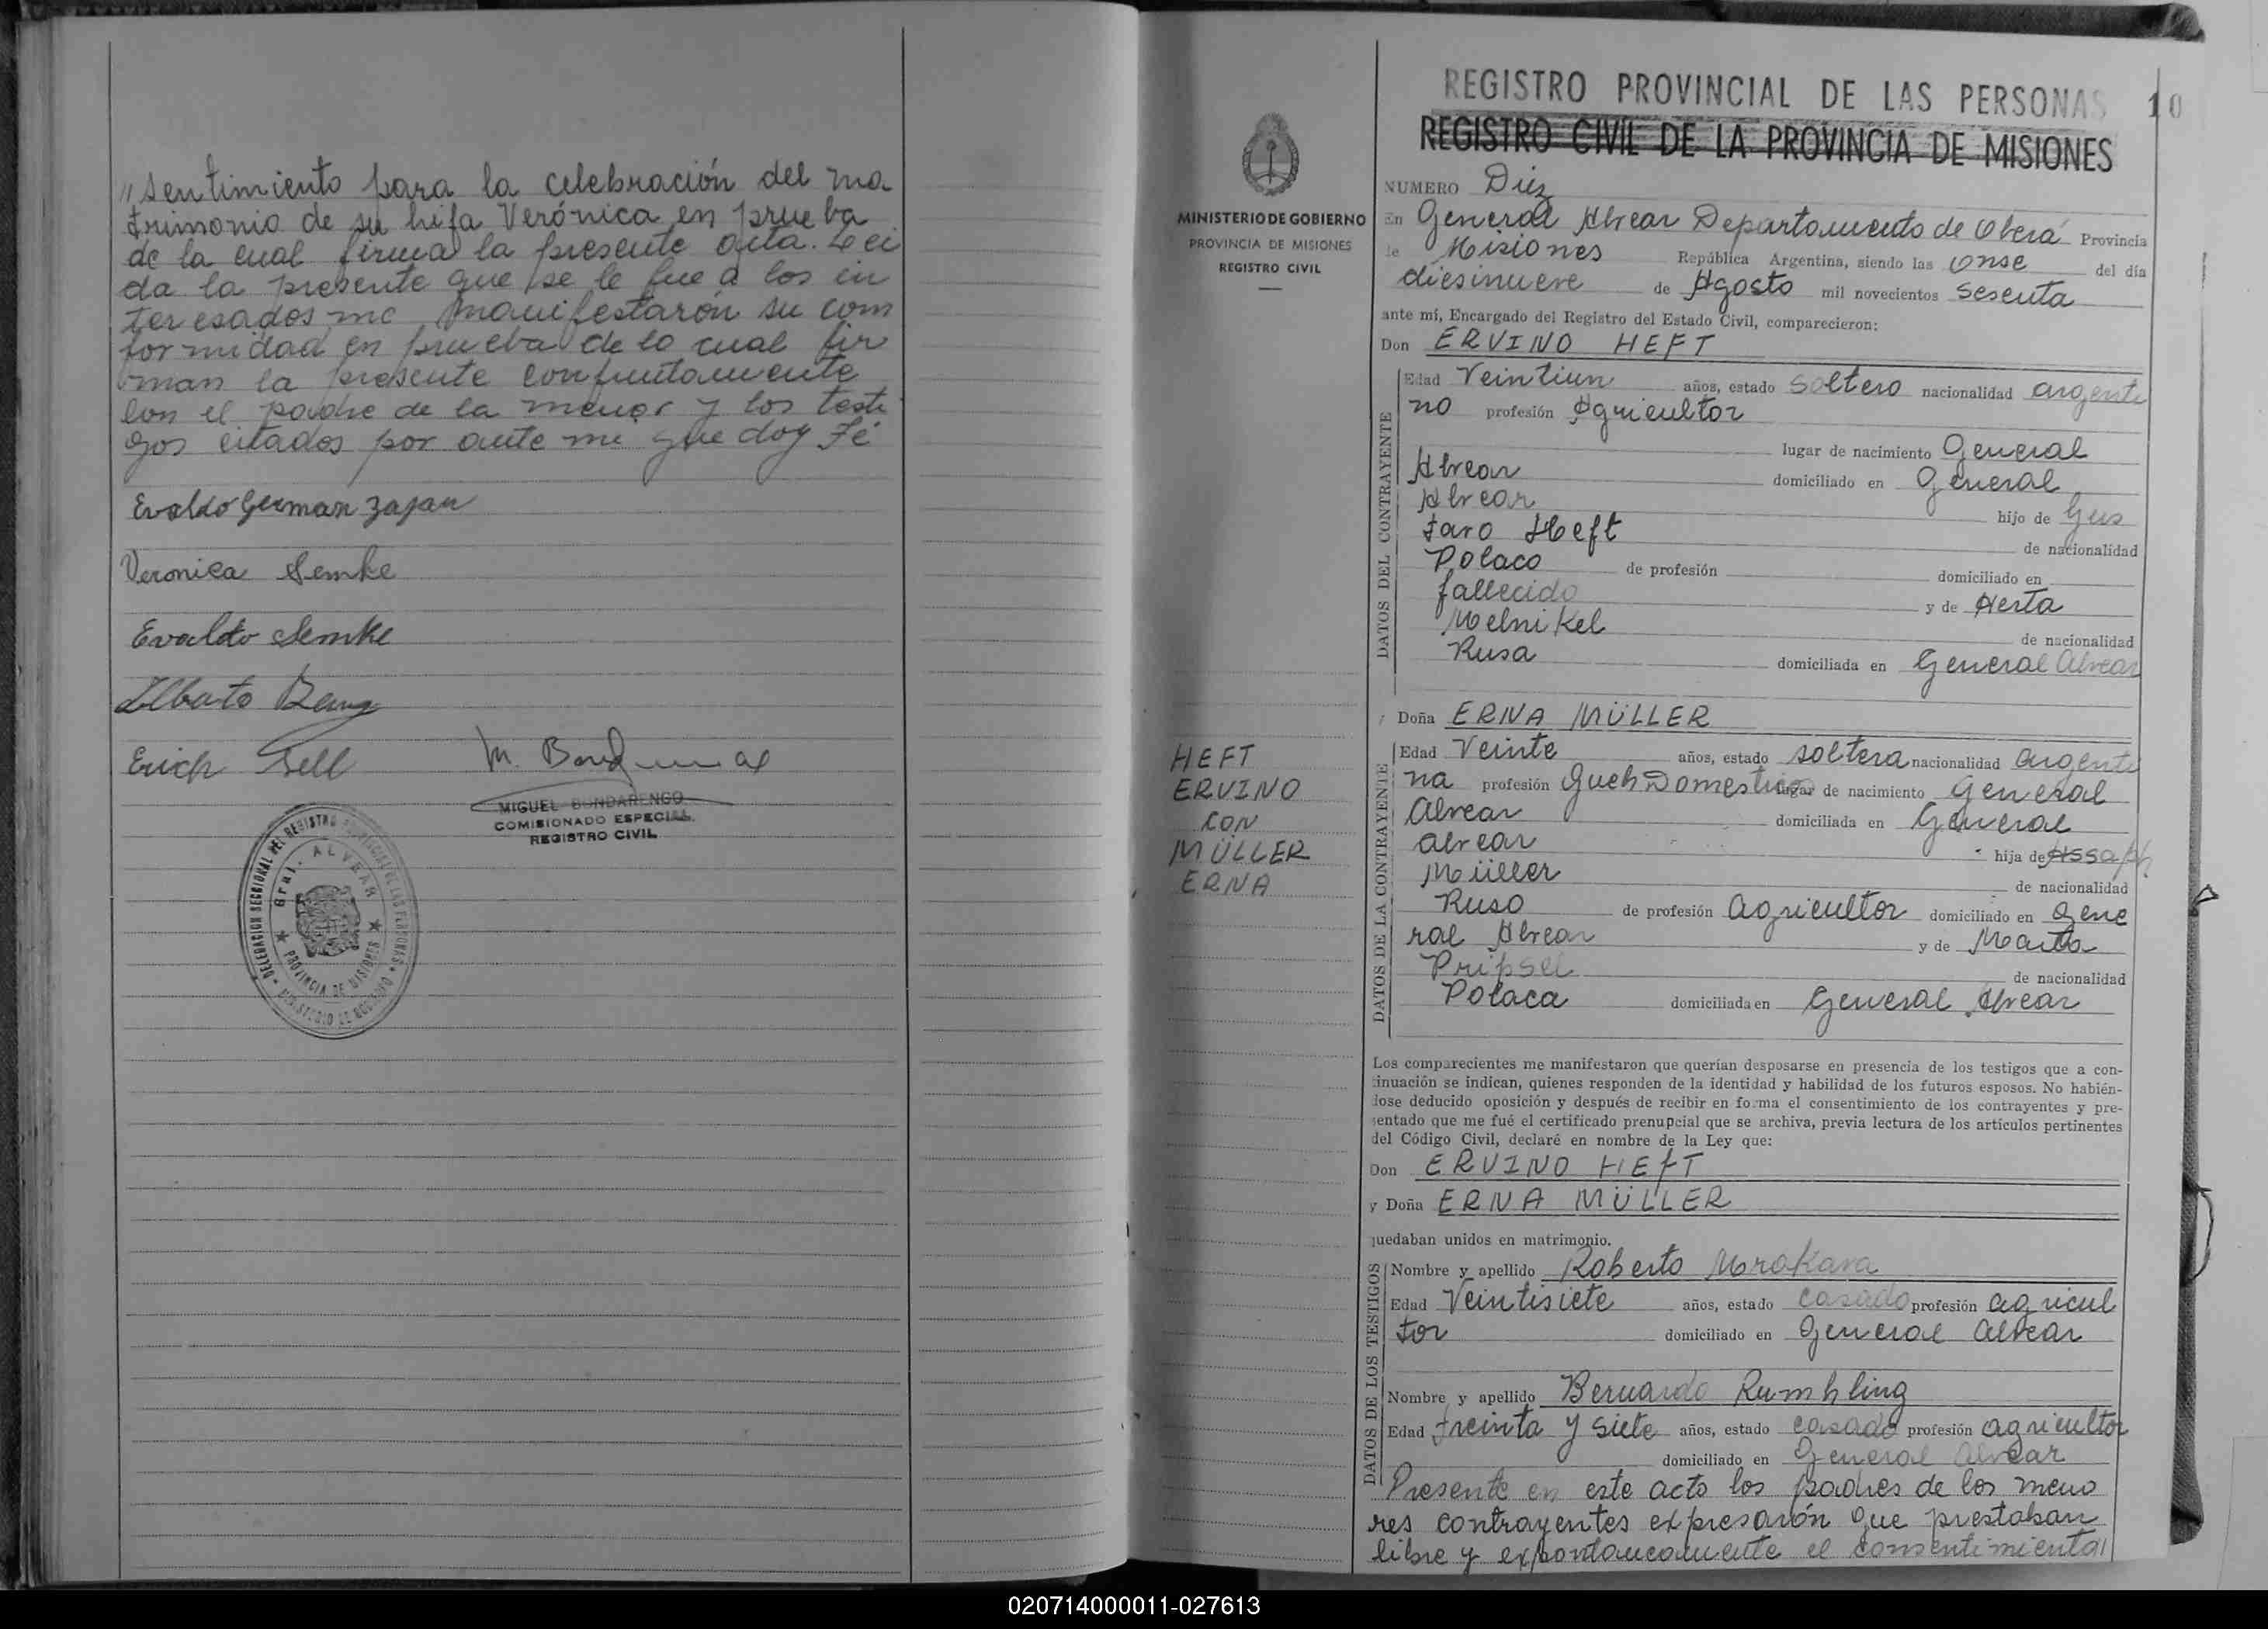 "sentimiento para la celebración del ma
trimonio de su hifa Verónica en prueba
de la cual firma la presente acta. Lei
da la presente que se le fue a los in
teresados me manifestarón su com
formidad en prueba de lo cual fir
man la presente confuntamente
con el padre de la menor y los testi
gos citados por ante mi que doy Fé
Evaldo German Zajan
Veronica Semke
Evaldo Semke
Erich Sell
MIGUEL BONDARENGO
COMISIONADO ESPECIAL
REGISTRO CIVIL
DELEGACION SECCIONAL DEL REGISTRO PROVINCIAL DE LAS PERSONAS
Gral. ALVEAR
★ PROVINCIA DE MISIONES ★
MINISTERIO DE GOBIERNO
MINISTERIO DE GOBIERNO
PROVINCIA DE MISIONES
REGISTRO CIVIL
HEFT
ERVINO
CON
MÜLLER
ERNA
REGISTRO PROVINCIAL DE LAS PERSONAS 10
REGISTRO CIVIL DE LA PROVINCIA DE MISIONES
NUMERO Diez
En General Alvear Departamento de Oberá Provincia
de Misiones República Argentina, siendo las onse del día
diesinueve de Agosto mil novecientos sesenta
ante mí, Encargado del Registro del Estado Civil, comparecieron:
Don ERVINO HEFT
DATOS DEL CONTRAYENTE
Edad Veintiun años, estado soltero nacionalidad argenti
no profesión Agricultor
lugar de nacimiento General
Alvear domiciliado en General
Alvear hijo de Gus
taro Heft de nacionalidad
Polaco de profesión domiciliado en
fallecido y de Herta
Melnikel de nacionalidad
Rusa domiciliada en General Alvear
Doña ERNA MÜLLER
DATOS DE LA CONTRAYENTE
Edad Veinte años, estado soltera nacionalidad argenti
na profesión Queh Domesticos lugar de nacimiento General
Alvear domiciliada en General
alvear hija de Assaph
Müller de nacionalidad
Ruso de profesión agricultor domiciliado en Gene
ral Alvear y de Marta
Pripsel de nacionalidad
Polaca domiciliada en General Alvear
Los comparecientes me manifestaron que querían desposarse en presencia de los testigos que a con-
tinuación se indican, quienes responden de la identidad y habilidad de los futuros esposos. No habién-
dose deducido oposición y después de recibir en forma el consentimiento de los contrayentes y pre-
sentado que me fué el certificado prenupcial que se archiva, previa lectura de los artículos pertinentes
del Código Civil, declaré en nombre de la Ley que:
Don ERVINO HEfT
y Doña ERNA MÜLLER
quedaban unidos en matrimonio.
DATOS DE LOS TESTIGOS
Nombre y apellido Roberto Mrakava
Edad Veintisiete años, estado casado profesión agricul
tor domiciliado en General alvear
Nombre y apellido Bernardo Rumhling
Edad treinta y siete años, estado casado profesión agricultor
domiciliado en General alvear
Presente en este acto los padres de los meno
res contrayentes expresarón que prestaban
libre y expontaneamente el consentimiento
020714000011-027613